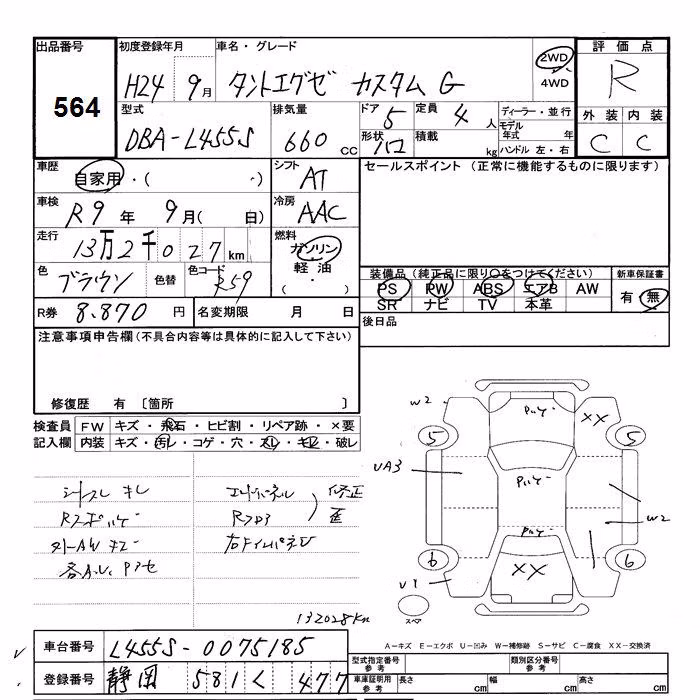 出品番号 初度登録年月 車名・グレード 評価点
564
H24 9月 タントエグゼ カスタム G 2WD 4WD R
型式 排気量 ドア 定員 ディーラー・並行 外装 内装
DBA-L455S 660 cc 5 4人 モデル年式 C C
形状 積載 kg ハンドル 左・右
車歴 シフト セールスポイント (正常に機能するものに限ります)
自家用・( ・) AT
車検 冷房
R9年 9月( 日) AAC
走行 燃料
13万2千027km ガソリン
軽油
( ・ )
色 色替 色コード 装備品 (純正品に限り○をつけてください) 新車保証書
ブラウン R59 PS PW ABS エアB AW 有・無
SR ナビ TV 本革
R券 8,870円 名変期限 月 日 後日品
注意事項申告欄 (不具合内容等は具体的に記入して下さい)
修復歴 有 〔箇所 〕
検査員 FW キズ・飛石・ヒビ割・リペア跡・×要
記入欄 内装 キズ・汚レ・コゲ・穴・スレ・キレ・破レ
シートスレ キレ
外-AW キズ
修正
歪
132028km
W2 XX
5 5
UA3 W2
6 6
U1 XX
スペア
A-キズ E-エクボ U-凹み W-補修跡 S-サビ C-腐食 XX-交換済
車台番号 L455S-0075185
登録番号 静岡 581 く 477
型式指定番号 参考 類別区分番号 参考
車庫証明用 参考 長さ cm 幅 cm 高さ cm